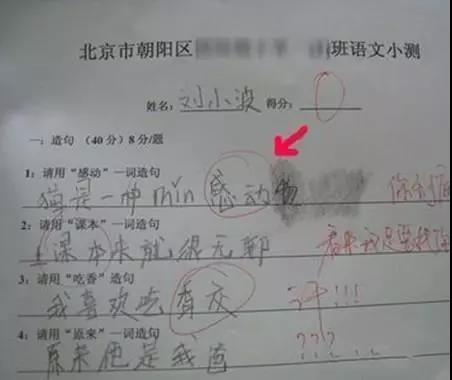 北京市朝阳区 班语文小测
姓名：刘小波 得分：0
一：造句 （40分）8分/题
1：请用“感动”一词造句
猫是一种min感动物 你别
2：请用“课本”一词造句
上课本来就很无聊 看来我是要找你
3：请用“吃香”造句
我喜欢吃香交 汗!!!
4：请用“原来”一词造句
原来他是我爸 ???...